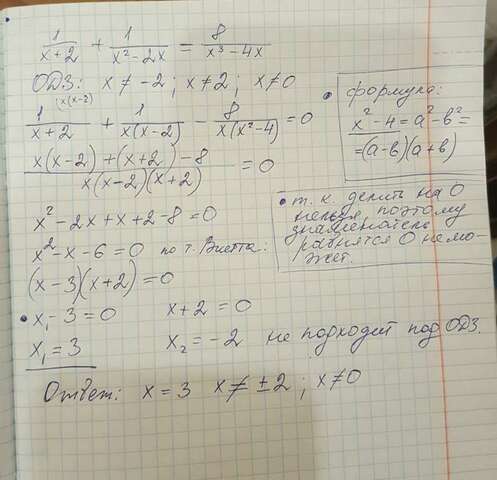 1/(x+2) + 1/(x²-2x) = 8/(x³-4x)
ОДЗ: x ≠ -2 ; x ≠ 2 ; x ≠ 0
1^(x(x-2))/(x+2) + 1/(x(x-2)) - 8/(x(x²-4)) = 0
(x(x-2) + (x+2) - 8)/(x(x-2)(x+2)) = 0
x² - 2x + x + 2 - 8 = 0
x² - x - 6 = 0 по т. Виетта:
(x-3)(x+2) = 0
• x₁ - 3 = 0 x + 2 = 0
x₁ = 3 x₂ = -2 не подходит под ОДЗ.
Ответ: x = 3 x ≠ ±2 ; x ≠ 0
• формула:
x² - 4 = a² - b² =
= (a-b)(a+b)
• т.к. делить на 0
нельзя, поэтому
знаменатель
равнятся 0 не мо-
жет.